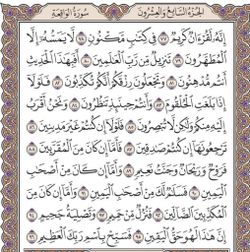 الجزء السابع والعشرون سورة الواقعة
إِنَّهُ لَقُرْءَانٌ كَرِيمٌ ٧٧ فِي كِتَٰبٍ مَّكْنُونٍ ٧٨ لَّا يَمَسُّهُۥٓ إِلَّا
ٱلْمُطَهَّرُونَ ٧٩ تَنزِيلٌ مِّن رَّبِّ ٱلْعَٰلَمِينَ ٨٠ أَفَبِهَٰذَا ٱلْحَدِيثِ
أَنتُم مُّدْهِنُونَ ٨١ وَتَجْعَلُونَ رِزْقَكُمْ أَنَّكُمْ تُكَذِّبُونَ ٨٢ فَلَوْلَآ
إِذَا بَلَغَتِ ٱلْحُلْقُومَ ٨٣ وَأَنتُمْ حِينَئِذٍ تَنظُرُونَ ٨٤ وَنَحْنُ أَقْرَبُ
إِلَيْهِ مِنكُمْ وَلَٰكِن لَّا تُبْصِرُونَ ٨٥ فَلَوْلَآ إِن كُنتُمْ غَيْرَ مَدِينِينَ ٨٦
تَرْجِعُونَهَآ إِن كُنتُمْ صَٰدِقِينَ ٨٧ فَأَمَّآ إِن كَانَ مِنَ ٱلْمُقَرَّبِينَ ٨٨
فَرَوْحٌ وَرَيْحَانٌ وَجَنَّتُ نَعِيمٍ ٨٩ وَأَمَّآ إِن كَانَ مِنْ أَصْحَٰبِ
ٱلْيَمِينِ ٩٠ فَسَلَٰمٌ لَّكَ مِنْ أَصْحَٰبِ ٱلْيَمِينِ ٩١ وَأَمَّآ إِن كَانَ مِنَ
ٱلْمُكَذِّبِينَ ٱلضَّآلِّينَ ٩٢ فَنُزُلٌ مِّنْ حَمِيمٍ ٩٣ وَتَصْلِيَةُ جَحِيمٍ ٩٤
إِنَّ هَٰذَا لَهُوَ حَقُّ ٱلْيَقِينِ ٩٥ فَسَبِّحْ بِٱسْمِ رَبِّكَ ٱلْعَظِيمِ ٩٦